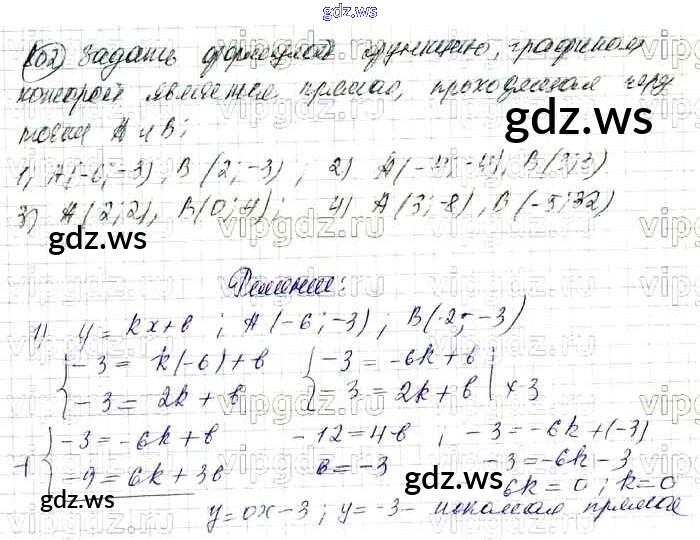 gdz.ws
102 Задать формулой функцию, графиком
которой является прямая, проходящая через
точки А и В:
1) A(-6; -3), B(2; -3); 2) A(-4; -4), B(3; 3)
3) A(2; 2), B(0; 4); 4) A(3; -8), B(-5; 32)
gdz.ws
gdz.ws
Решение:
1) y = kx + в ; A(-6; -3) ; B(2; -3)
{-3 = k(-6) + в {-3 = -6k + в
{-3 = 2k + в {-3 = 2k + в | × 3
+ {-3 = -6k + в -12 = 4в ; -3 = -6k + (-3)
{-9 = 6k + 3в в = -3 -3 = -6k - 3
6k = 0 ; k = 0
y = 0x - 3 ; y = -3 - искомая прямая
gdz.ws
gdz.ws
gdz.ws